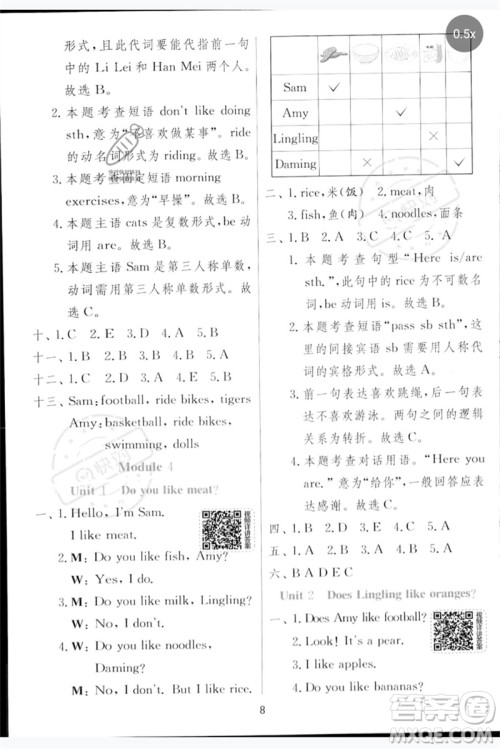 0.5x
形式，且此代词要能代指前一句
中的 Li Lei 和 Han Mei 两个人。
故选 B。
2. 本题考查短语 don't like doing
sth，意为“不喜欢做某事”。ride
的动名词形式为 riding。故选 B。
3. 本题考查固定短语 morning
exercises，意为“早操”。故选 C。
4. 本题主语 cats 是复数形式，be 动
词用 are。故选 B。
5. 本题主语 Sam 是第三人称单数，
动词需用第三人称单数形式。
故选 C。
十、1. C 2. E 3. D 4. A 5. B
十一、1. B 2. B 3. A 4. B 5. A
十二、1. B 2. C 3. D 4. E 5. A
十三、Sam: football, ride bikes, tigers
Amy: basketball, ride bikes,
swimming, dolls
Module 4
Unit 1 Do you like meat?
一、1. Hello, I'm Sam.
I like meat.
2. M: Do you like fish, Amy?
W: Yes, I do.
3. M: Do you like milk, Lingling?
W: No, I don't.
4. W: Do you like noodles,
Daming?
M: No, I don't. But I like rice.
视频讲透答案
Sam ✓
Amy ✓
Lingling ×
Daming × ✓
二、1. rice，米(饭) 2. meat，肉
3. fish，鱼(肉) 4. noodles，面条
三、1. 本题考查句型“Here is/are
sth.”，此句中的 rice 为不可数名
词，be 动词用 is。故选 A。
2. 本题考查短语“pass sb sth”，这
里的间接宾语需要用人称代
词的宾格形式。故选 C。
3. 前一句表达喜欢跳绳，后一句
表达不喜欢游泳，两句的逻辑
关系为转折。故选 C。
4. 本题考查对话用语。“Here you
are.”意为“给你”，一般回答应表
达感谢。故选 C。
四、1. B 2. D 3. C 4. A
五、1. A 2. C 3. B 4. D
六、B A D E C
Unit 2 Does Lingling like oranges?
一、1. Does Amy like football?
2. Look! It's a pear.
3. I like apples.
4. Do you like bananas?
视频讲透答案
8
答案圈
MXQE.COM